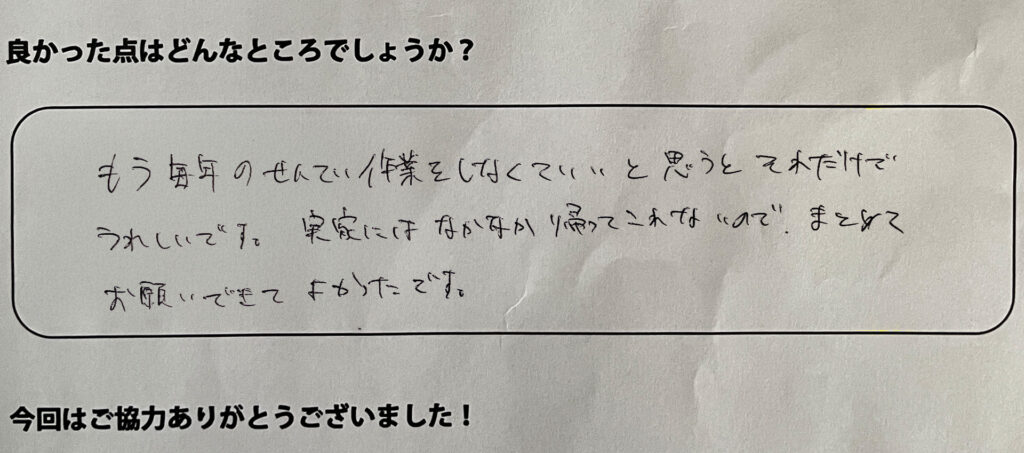 良かった点はどんなところでしょうか？
もう毎年のせんてい作業をしなくていいと思うとそれだけで
うれしいです。実家にはなかなか帰ってこれないので、まとめて
お願いできてよかったです。
今回はご協力ありがとうございました！